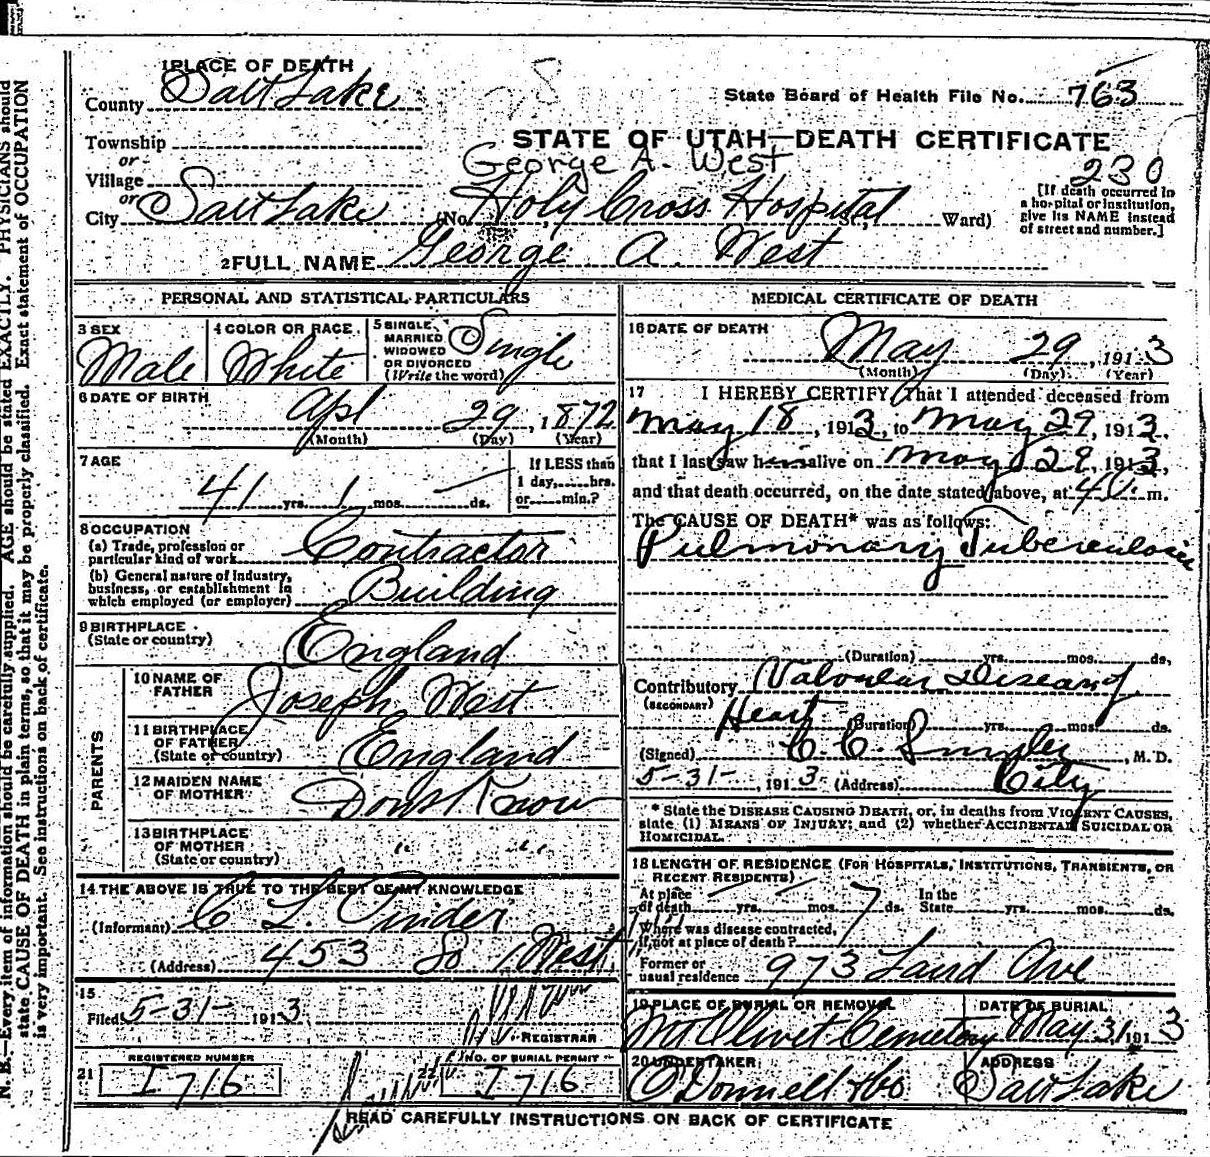 1 PLACE OF DEATH
County Salt Lake
State Board of Health File No. 763
Township
STATE OF UTAH—DEATH CERTIFICATE
or
George A. West
Village
230
or
City Salt Lake (No. Holy Cross Hospital St., Ward)
[If death occurred in
a hospital or institution,
give its NAME instead
of street and number.]
2 FULL NAME George A. West
PERSONAL AND STATISTICAL PARTICULARS
3 SEX
Male
4 COLOR OR RACE
White
5 SINGLE,
MARRIED,
WIDOWED
OR DIVORCED
(Write the word)
Single
6 DATE OF BIRTH
Apl 29, 1872
(Month) (Day) (Year)
7 AGE
41 yrs. 1 mos. — ds.
If LESS than
1 day, hrs.
or min.?
8 OCCUPATION
(a) Trade, profession or
particular kind of work Contractor
(b) General nature of Industry,
business, or establishment in
which employed (or employer) Building
9 BIRTHPLACE
(State or country)
England
PARENTS
10 NAME OF
FATHER
Joseph West
11 BIRTHPLACE
OF FATHER
(State or country)
England
12 MAIDEN NAME
OF MOTHER
Dont Know
13 BIRTHPLACE
OF MOTHER
(State or country)
" "
14 THE ABOVE IS TRUE TO THE BEST OF MY KNOWLEDGE
(Informant) C L
(Address) 453 So 1 West
15
Filed 5-31- 1913
REGISTRAR
REGISTERED NUMBER
21 I716
22 NO. OF BURIAL PERMIT
I716
MEDICAL CERTIFICATE OF DEATH
16 DATE OF DEATH
May 29, 1913
(Month) (Day) (Year)
17 I HEREBY CERTIFY, That I attended deceased from
May 18, 1913, to May 29, 1913,
that I last saw him alive on May 29, 1913,
and that death occurred, on the date stated above, at m.
The CAUSE OF DEATH* was as follows:
Pulmonary Tuberculosis
(Duration) yrs. mos. ds.
Contributory Valvular Disease of
(SECONDARY)
Heart (Duration) yrs. mos. ds.
(Signed) C. C. , M. D.
5-31-, 1913 (Address) City
* State the DISEASE CAUSING DEATH, or, in deaths from VIOLENT CAUSES,
state (1) MEANS OF INJURY; and (2) whether ACCIDENTAL SUICIDAL OR
HOMICIDAL.
18 LENGTH OF RESIDENCE (FOR HOSPITALS, INSTITUTIONS, TRANSIENTS, OR
RECENT RESIDENTS)
At place
of death — yrs. — mos. 7 ds.
In the
State yrs. mos. ds.
Where was disease contracted,
if not at place of death?
Former or
usual residence 973 Laird Ave
19 PLACE OF BURIAL OR REMOVAL
Mt Olivet Cemetery
DATE OF BURIAL
May 31, 1913
20 UNDERTAKER
O'Donnell & Co
ADDRESS
Salt Lake
READ CAREFULLY INSTRUCTIONS ON BACK OF CERTIFICATE
N. B.—Every item of information should be carefully supplied. AGE should be stated EXACTLY. PHYSICIANS should
state CAUSE OF DEATH in plain terms, so that it may be properly classified. Exact statement of OCCUPATION
is very important. See instructions on back of certificate.